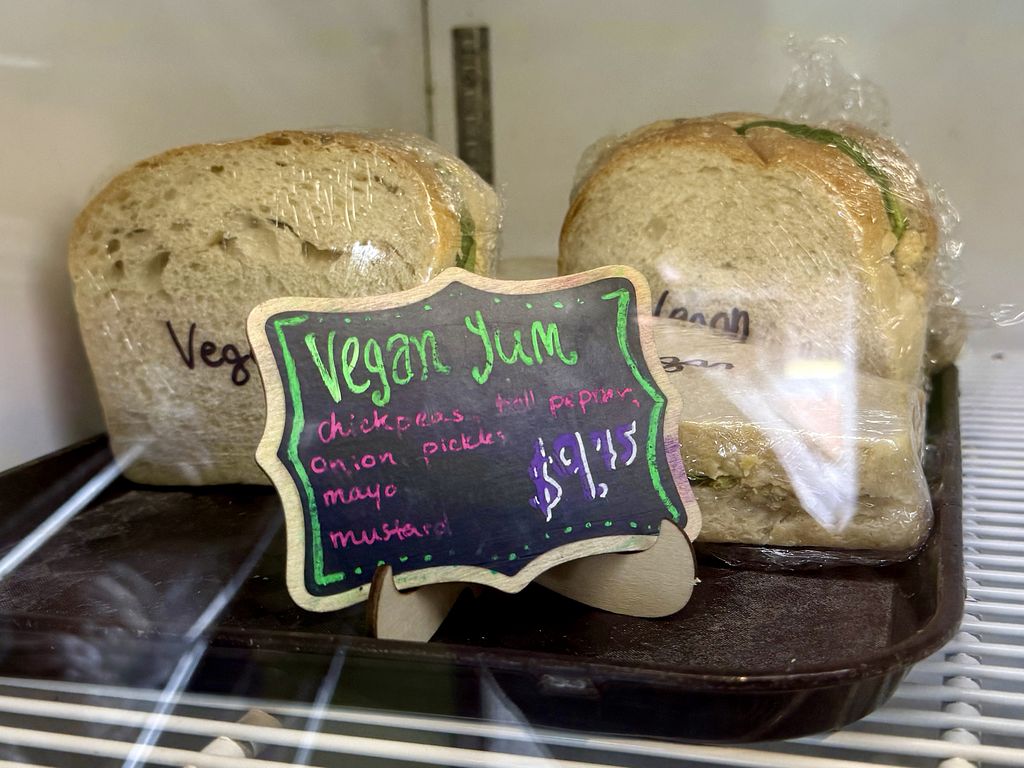 Vegan Yum
chickpeas, bell pepper,
onion pickles
mayo
mustard
$9.75
Vegan